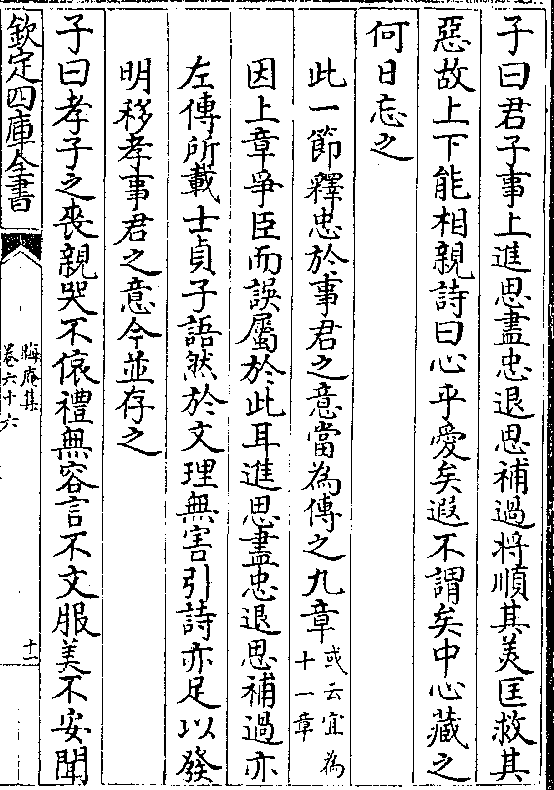 子曰君子事上進思盡忠退思補過將順其美匡救其
惡故上下能相親詩曰心乎愛矣遐不謂矣中心藏之
何日忘之
此一節釋忠於事君之意當為傳之九章或云宜為十一章
因上章爭臣而誤屬於此耳進思盡忠退思補過亦
左傳所載士貞子語然於文理無害引詩亦足以發
明移孝事君之意今並存之
子曰孝子之喪親哭不偯禮無容言不文服美不安聞
欽定四庫全書
晦庵集
卷六十六
十二